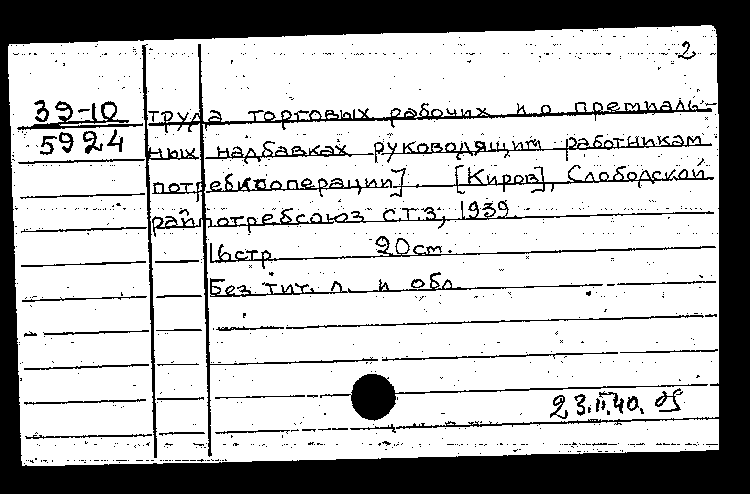 2
39-10
5924
труда торговых рабочих и о премиаль-
ных надбавках руководящим работникам
потребкооперации]. [Киров], Слободской
райпотребсоюз с.г.з, 1939.
16стр. 20см.
Без тит. л. и обл.
23.II.40.